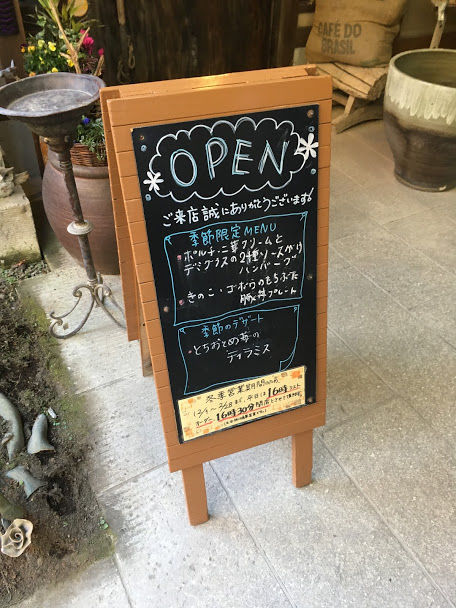 CAFÉ DO
BRASIL
OPEN
ご来店誠にありがとうございます!
季節限定MENU
ポルチーニ茸クリームと
デミグラスの2種ソースがけ
ハンバーグ
きのこ・ゴボウのもちぶた
豚丼プレート
季節のデザート
・とちおとめ苺の
ティラミス
冬季営業期間のため
平日は16時ラスト
オーダー16時30分閉店とさせて頂きます